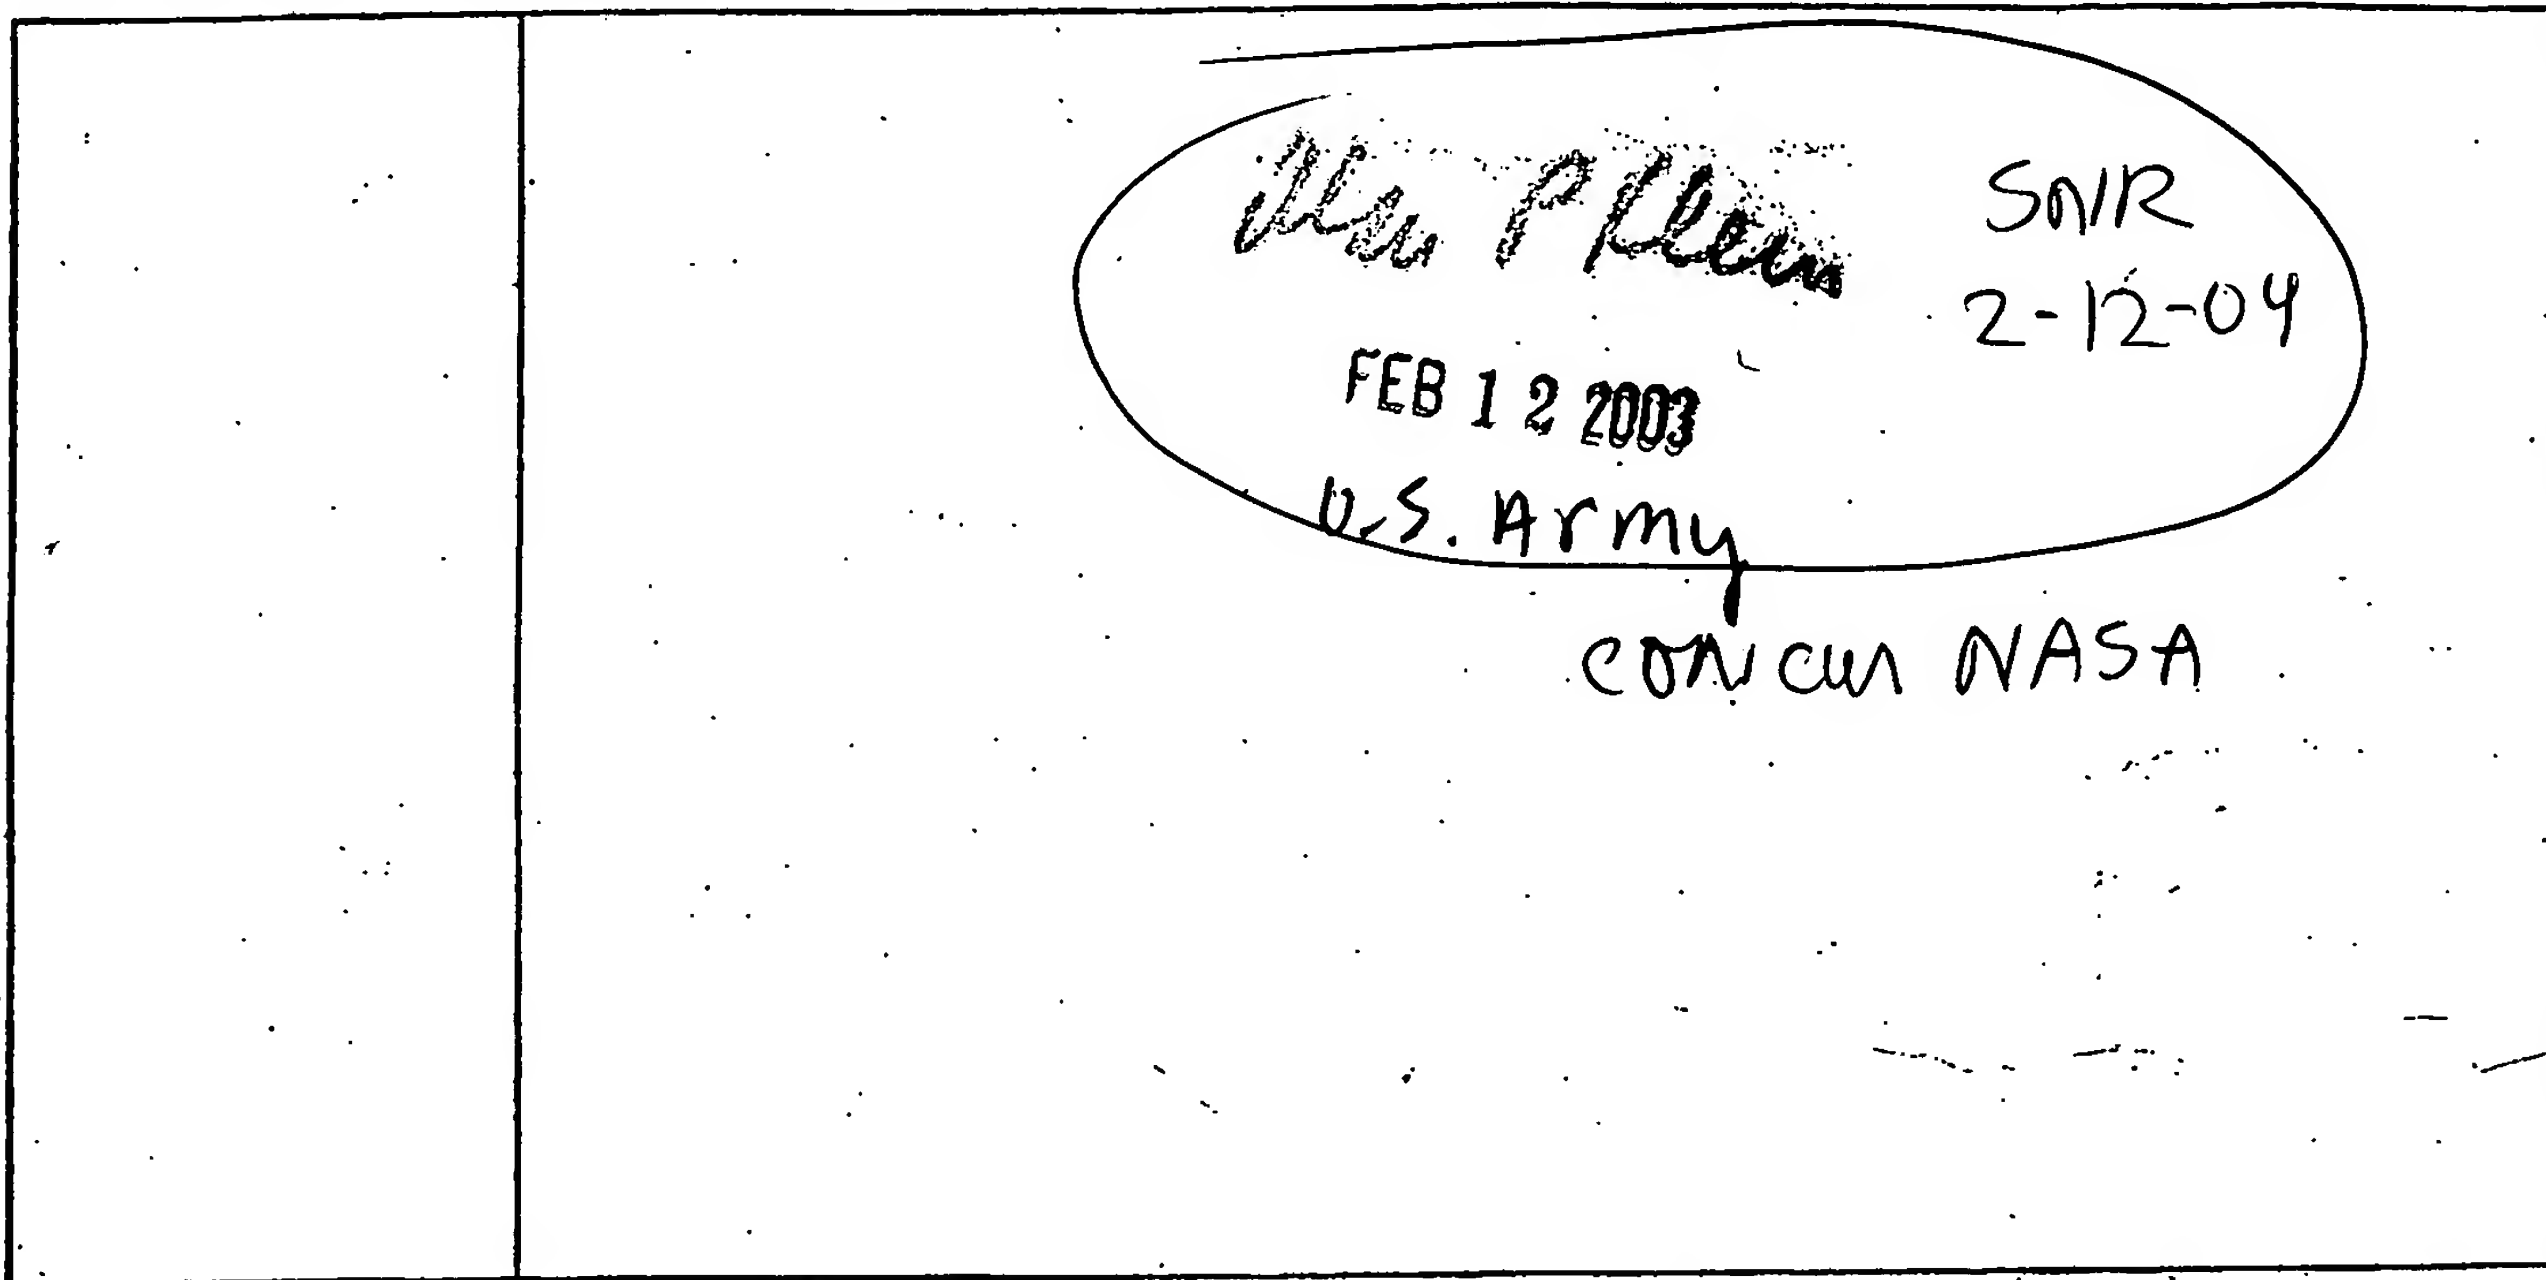 Wm P Klein
SNR
2-12-04
FEB 12 2003
U.S. Army
concur NASA